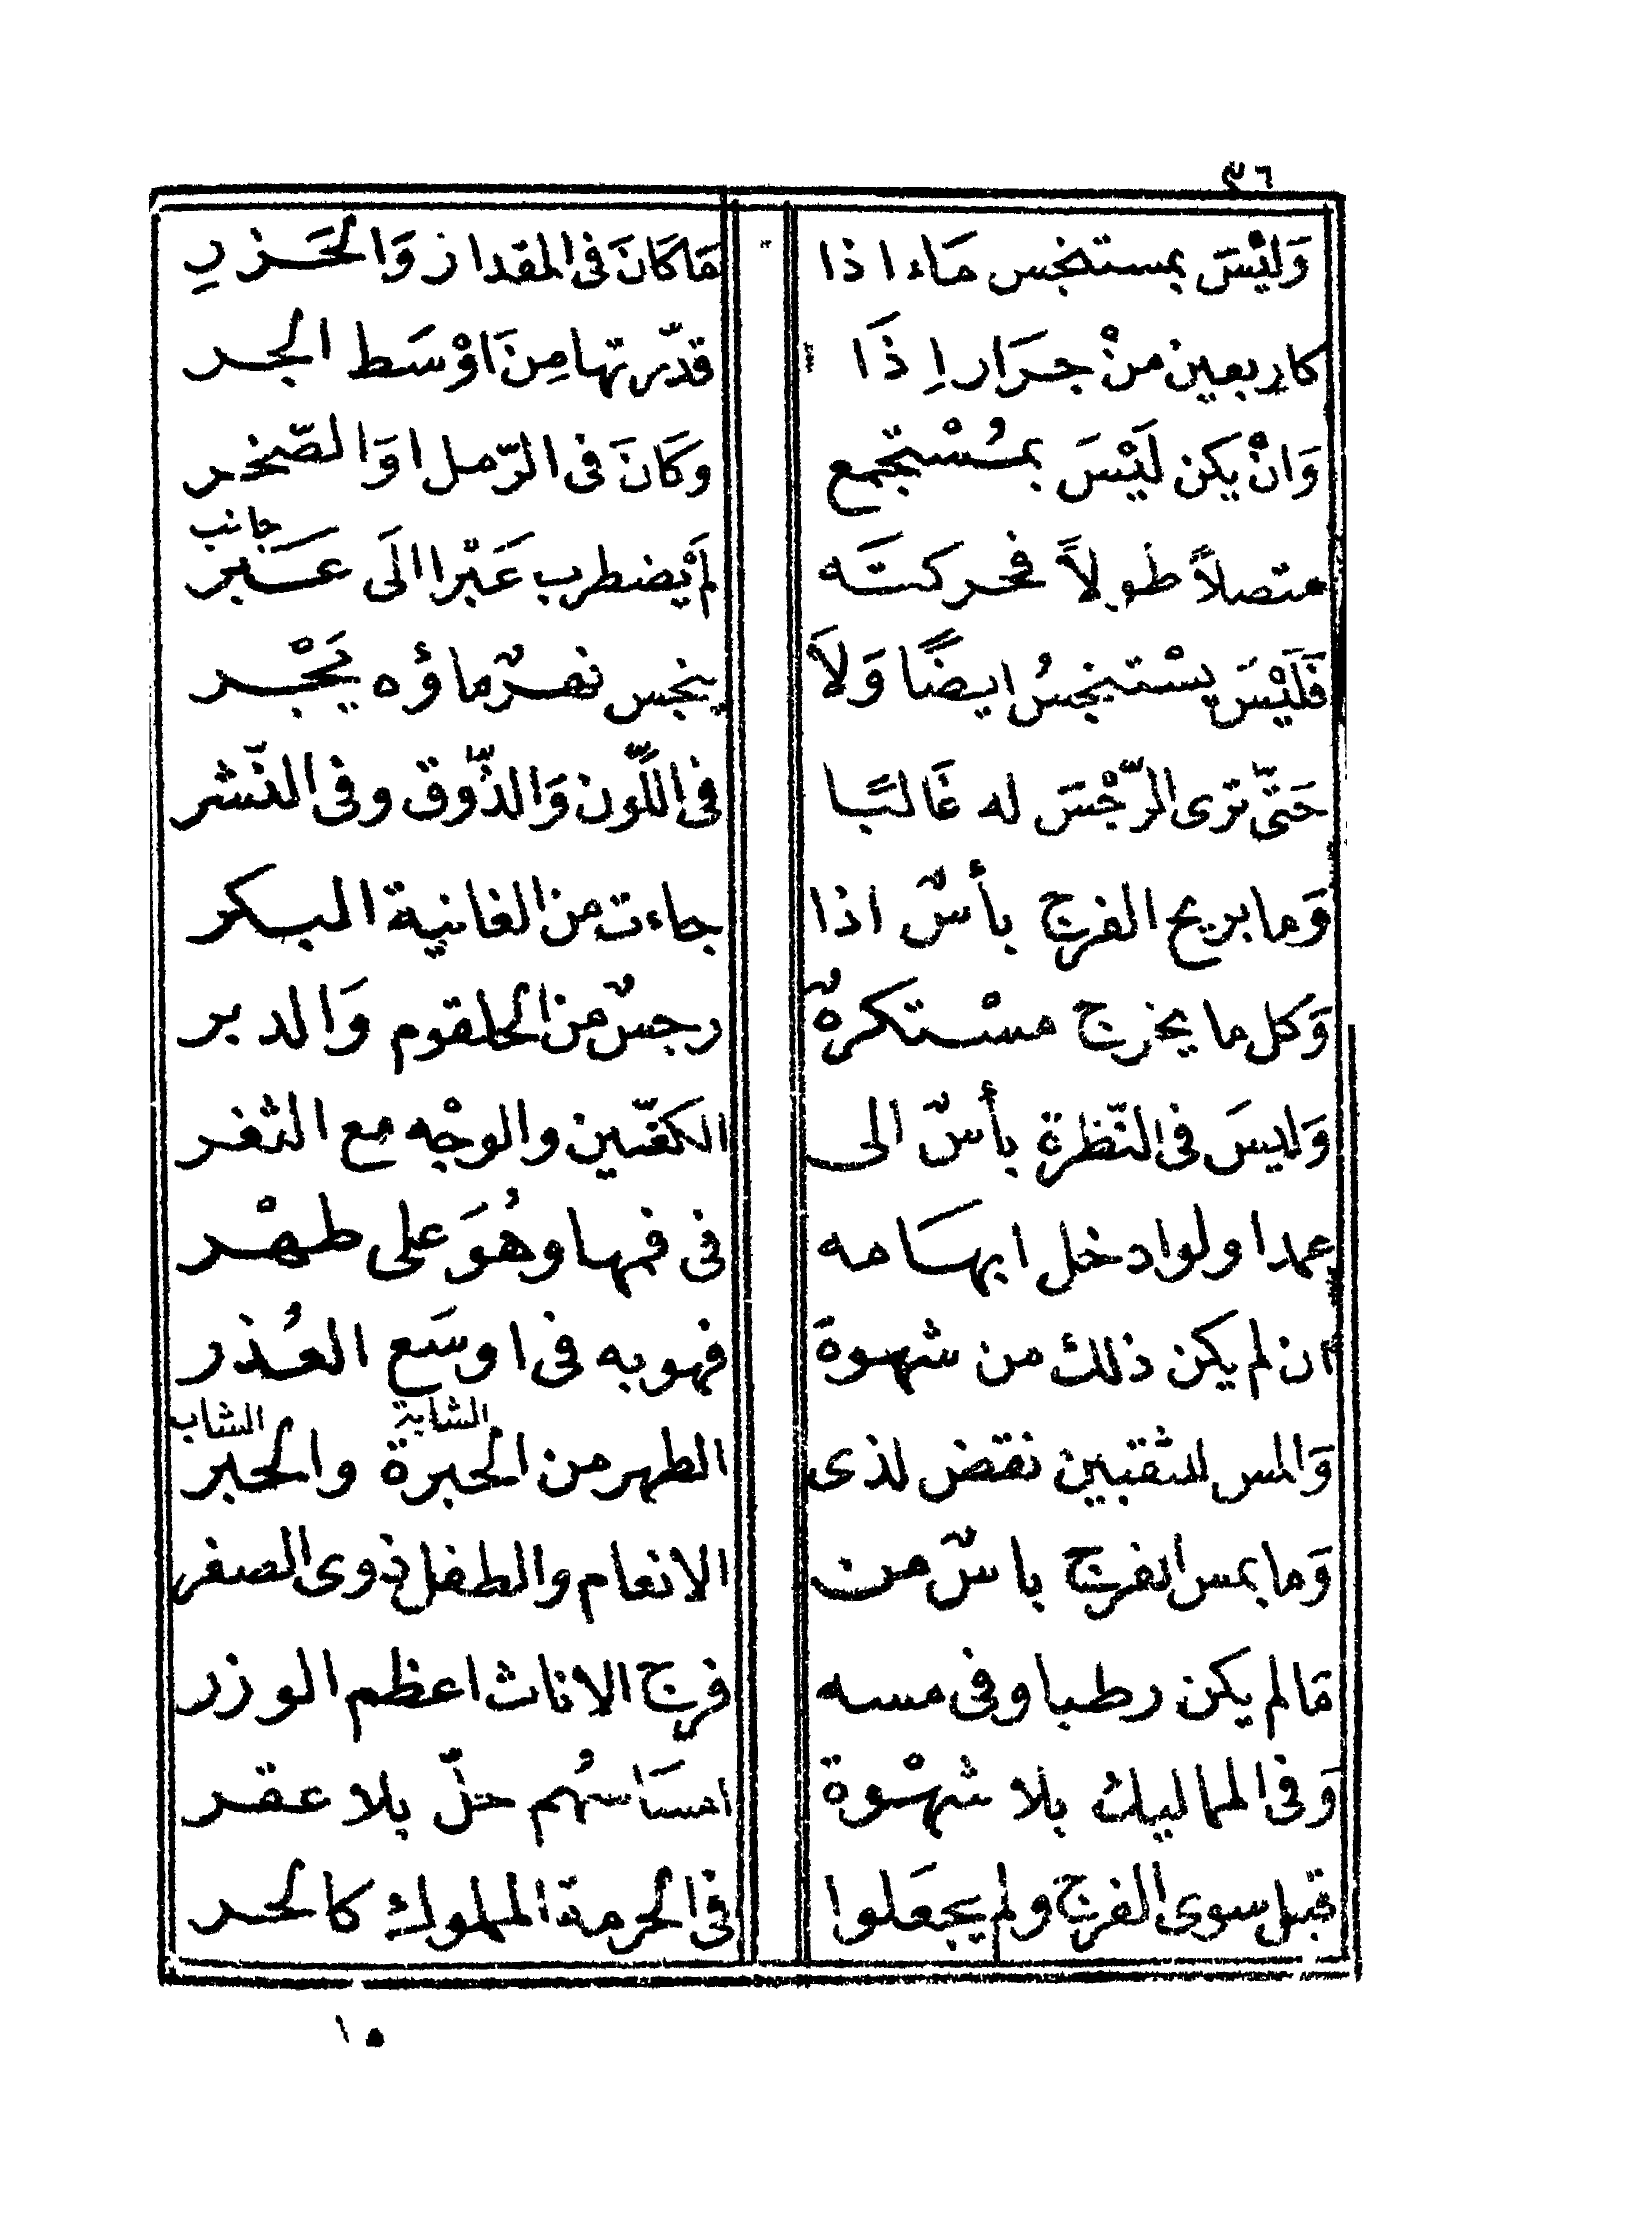 ٣٦
وَلَيْسَ بمستنجس مَاء اذا مَا كَانَ فى المقدار وَالحَزرِ
كاربعين منْ جرَار اِذَا قدّرتها مِنَ اوْسَط الجر
وَانْ يكن لَيْسَ بمُسْتجمع وكَانَ فى الرّمل اوَ الصّخر
جانب
متصلاً طولاً فحركتَه لم يَضطرب عَبْرا الَى عَبر
فَلَيْسَ يسْتنجسُ ايضًا وَلاَ ينجس نهرٌ ماؤه يَجْر
حَتّى ترى الرّجْسَ له غَالبًا فى اللّون وَالذّوق وفى النّشر
وَما بريح الفرج بأسٌ اذا جاءت من الغانية البكر
وَكل ما يخرج مسْتكرهٌ رجسٌ من الحلقوم وَالدبر
وَليسَ فى النّظرة بأسٌ الى الكفّين والوجْه مع الثغر
عمدا ولو ادخل ابهَامه فى فمها وهُوَ على طهْر
ان لم يكن ذلك من شهوةَ فهو به فى اوسَع العُذر
الشابة الشاب
وَالمس للثقبين نقض لذى الطهر من الحبرة والحبر
وَما بمس الفرج باسٌ من الانعام والطفل ذوى الصغر
مَا لم يكن رطبا وفى مسه فرج الاناث اعظم الوزر
وَفى المماليك بلا شهْوة امسَاسُهم حلّ بلا عقر
قبل سوى الفرج ولم يجعَلوا فى الحرمة المملوك كالحر